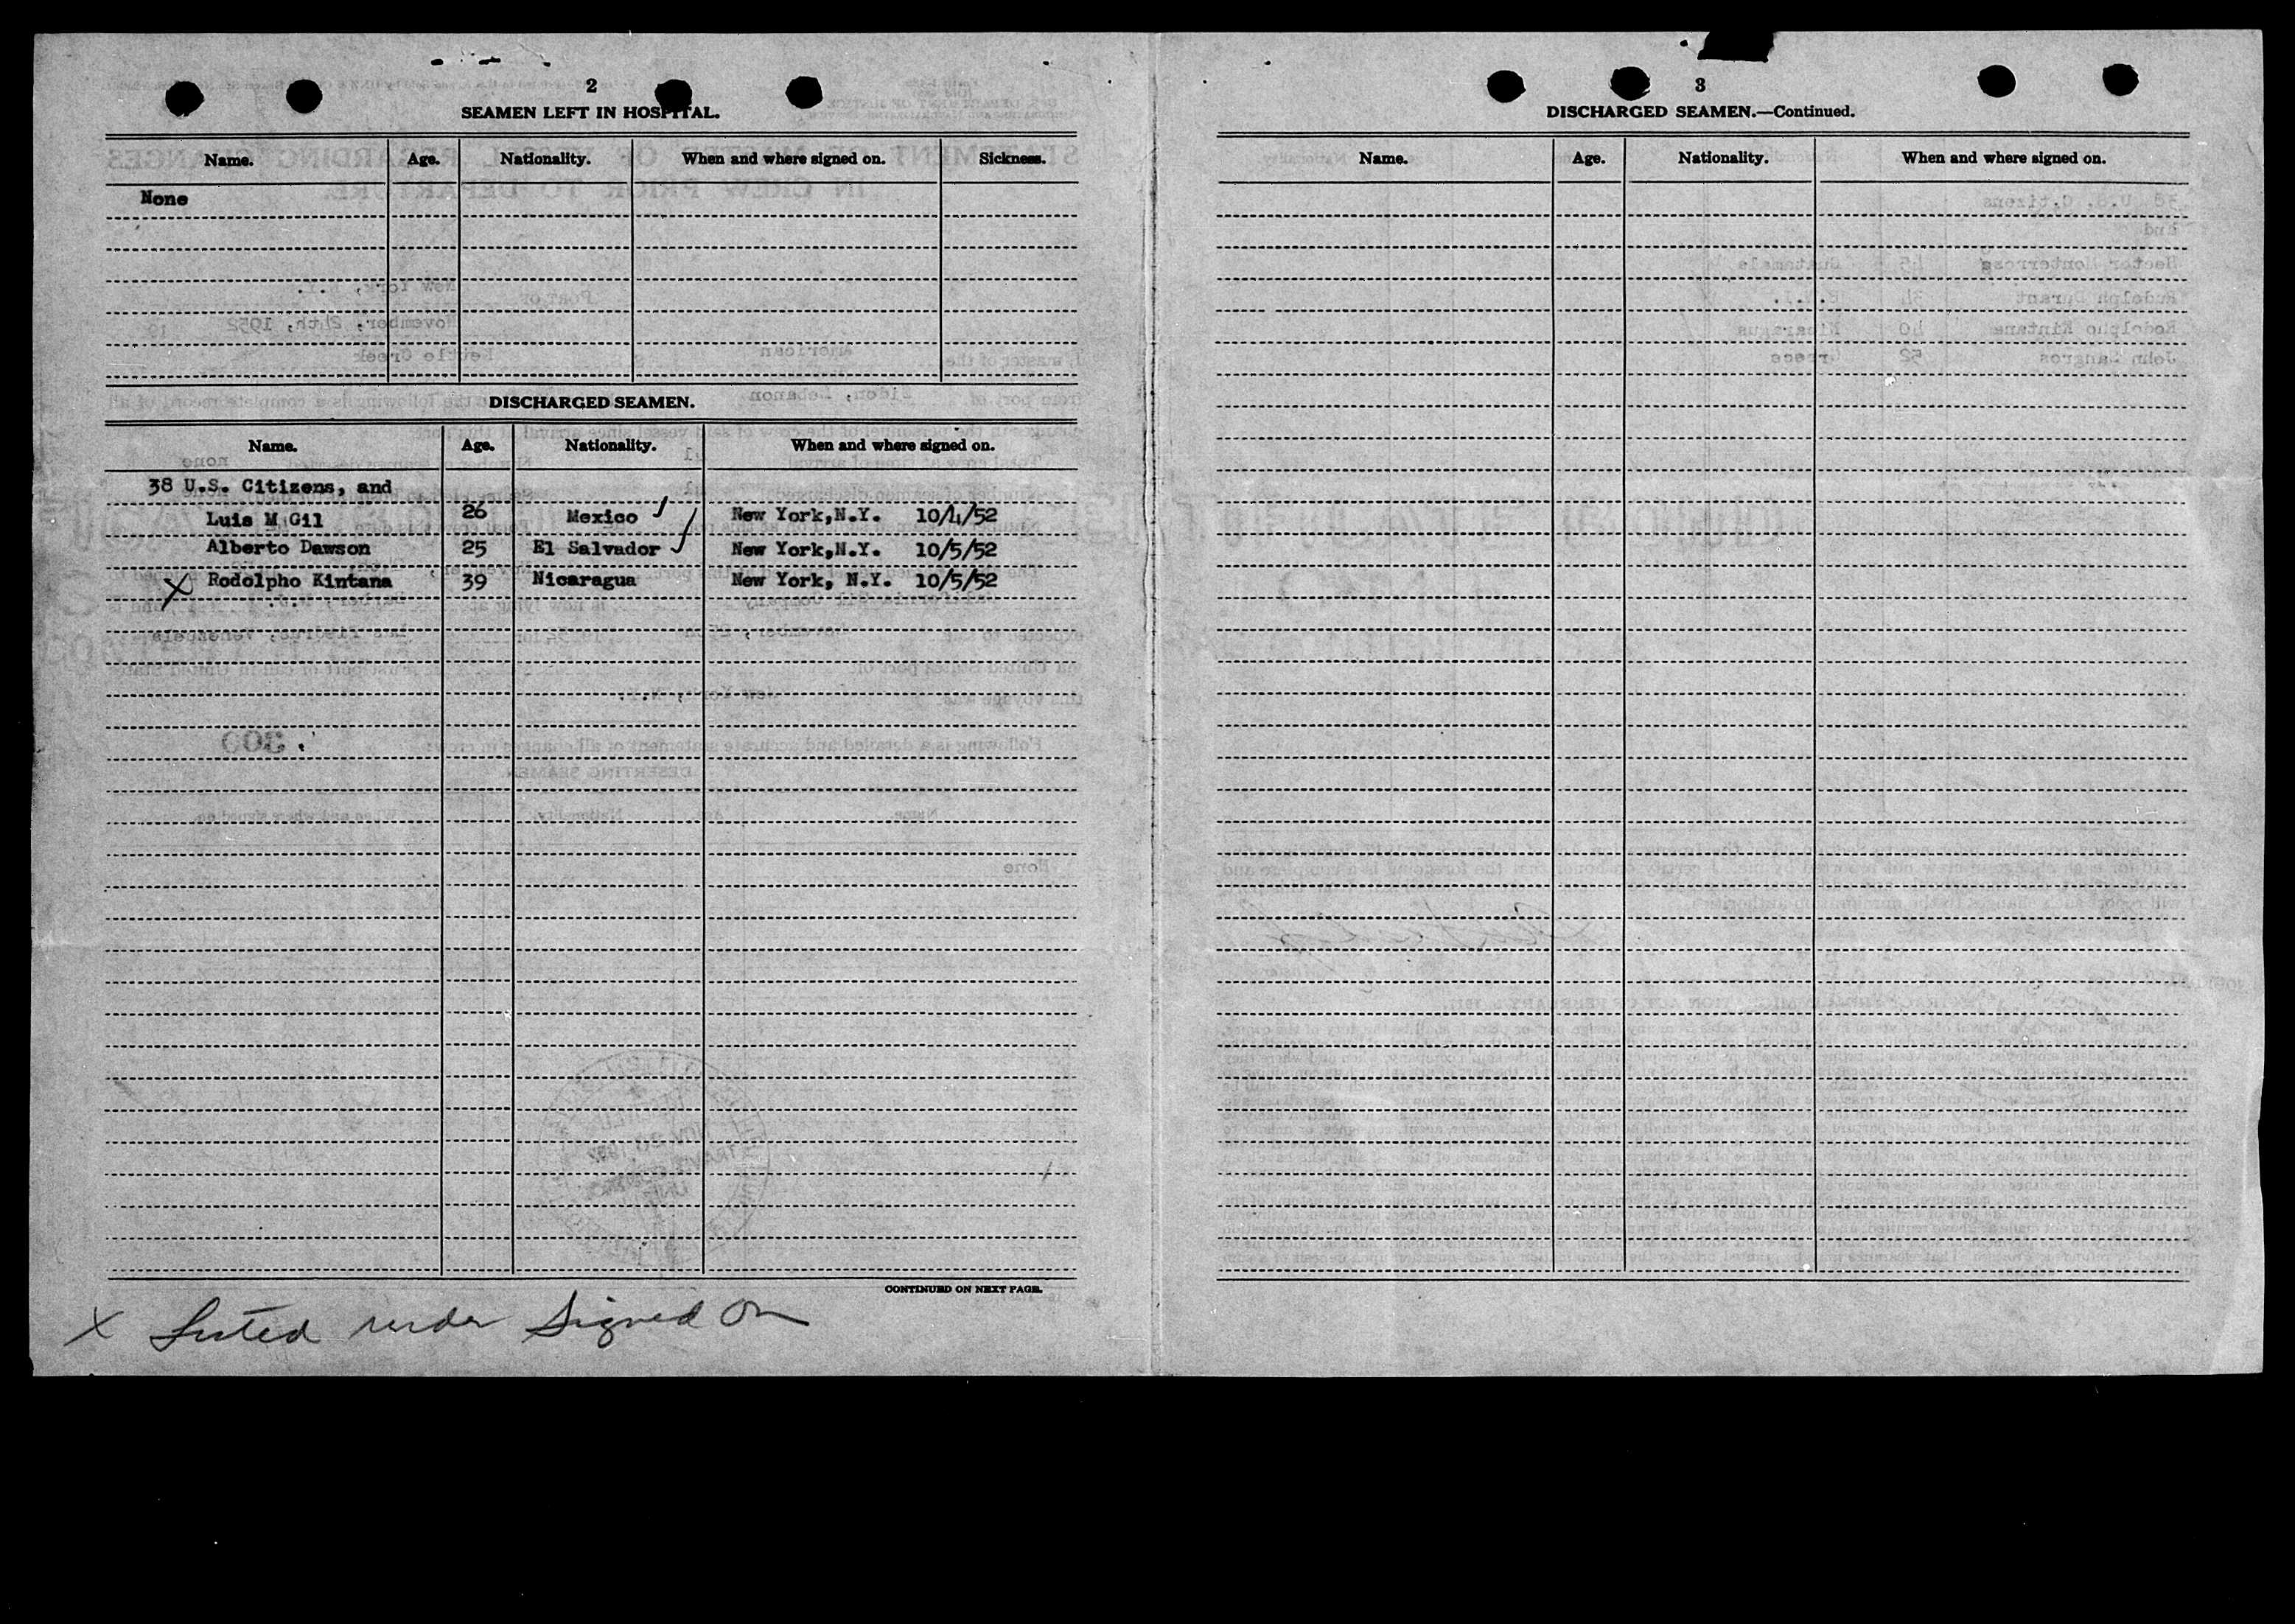 2
SEAMEN LEFT IN HOSPITAL.
Name. Age. Nationality. When and where signed on. Sickness.
None
DISCHARGED SEAMEN.
Name. Age. Nationality. When and where signed on.
38 U.S. Citizens, and
Luis M Gil 26 Mexico New York,N.Y. 10/4/52
Alberto Dawson 25 El Salvador New York,N.Y. 10/5/52
X Rodolpho Kintana 39 Nicaragua New York, N.Y. 10/5/52
CONTINUED ON NEXT PAGE.
X Listed under Signed On
3
DISCHARGED SEAMEN.—Continued.
Name. Age. Nationality. When and where signed on.